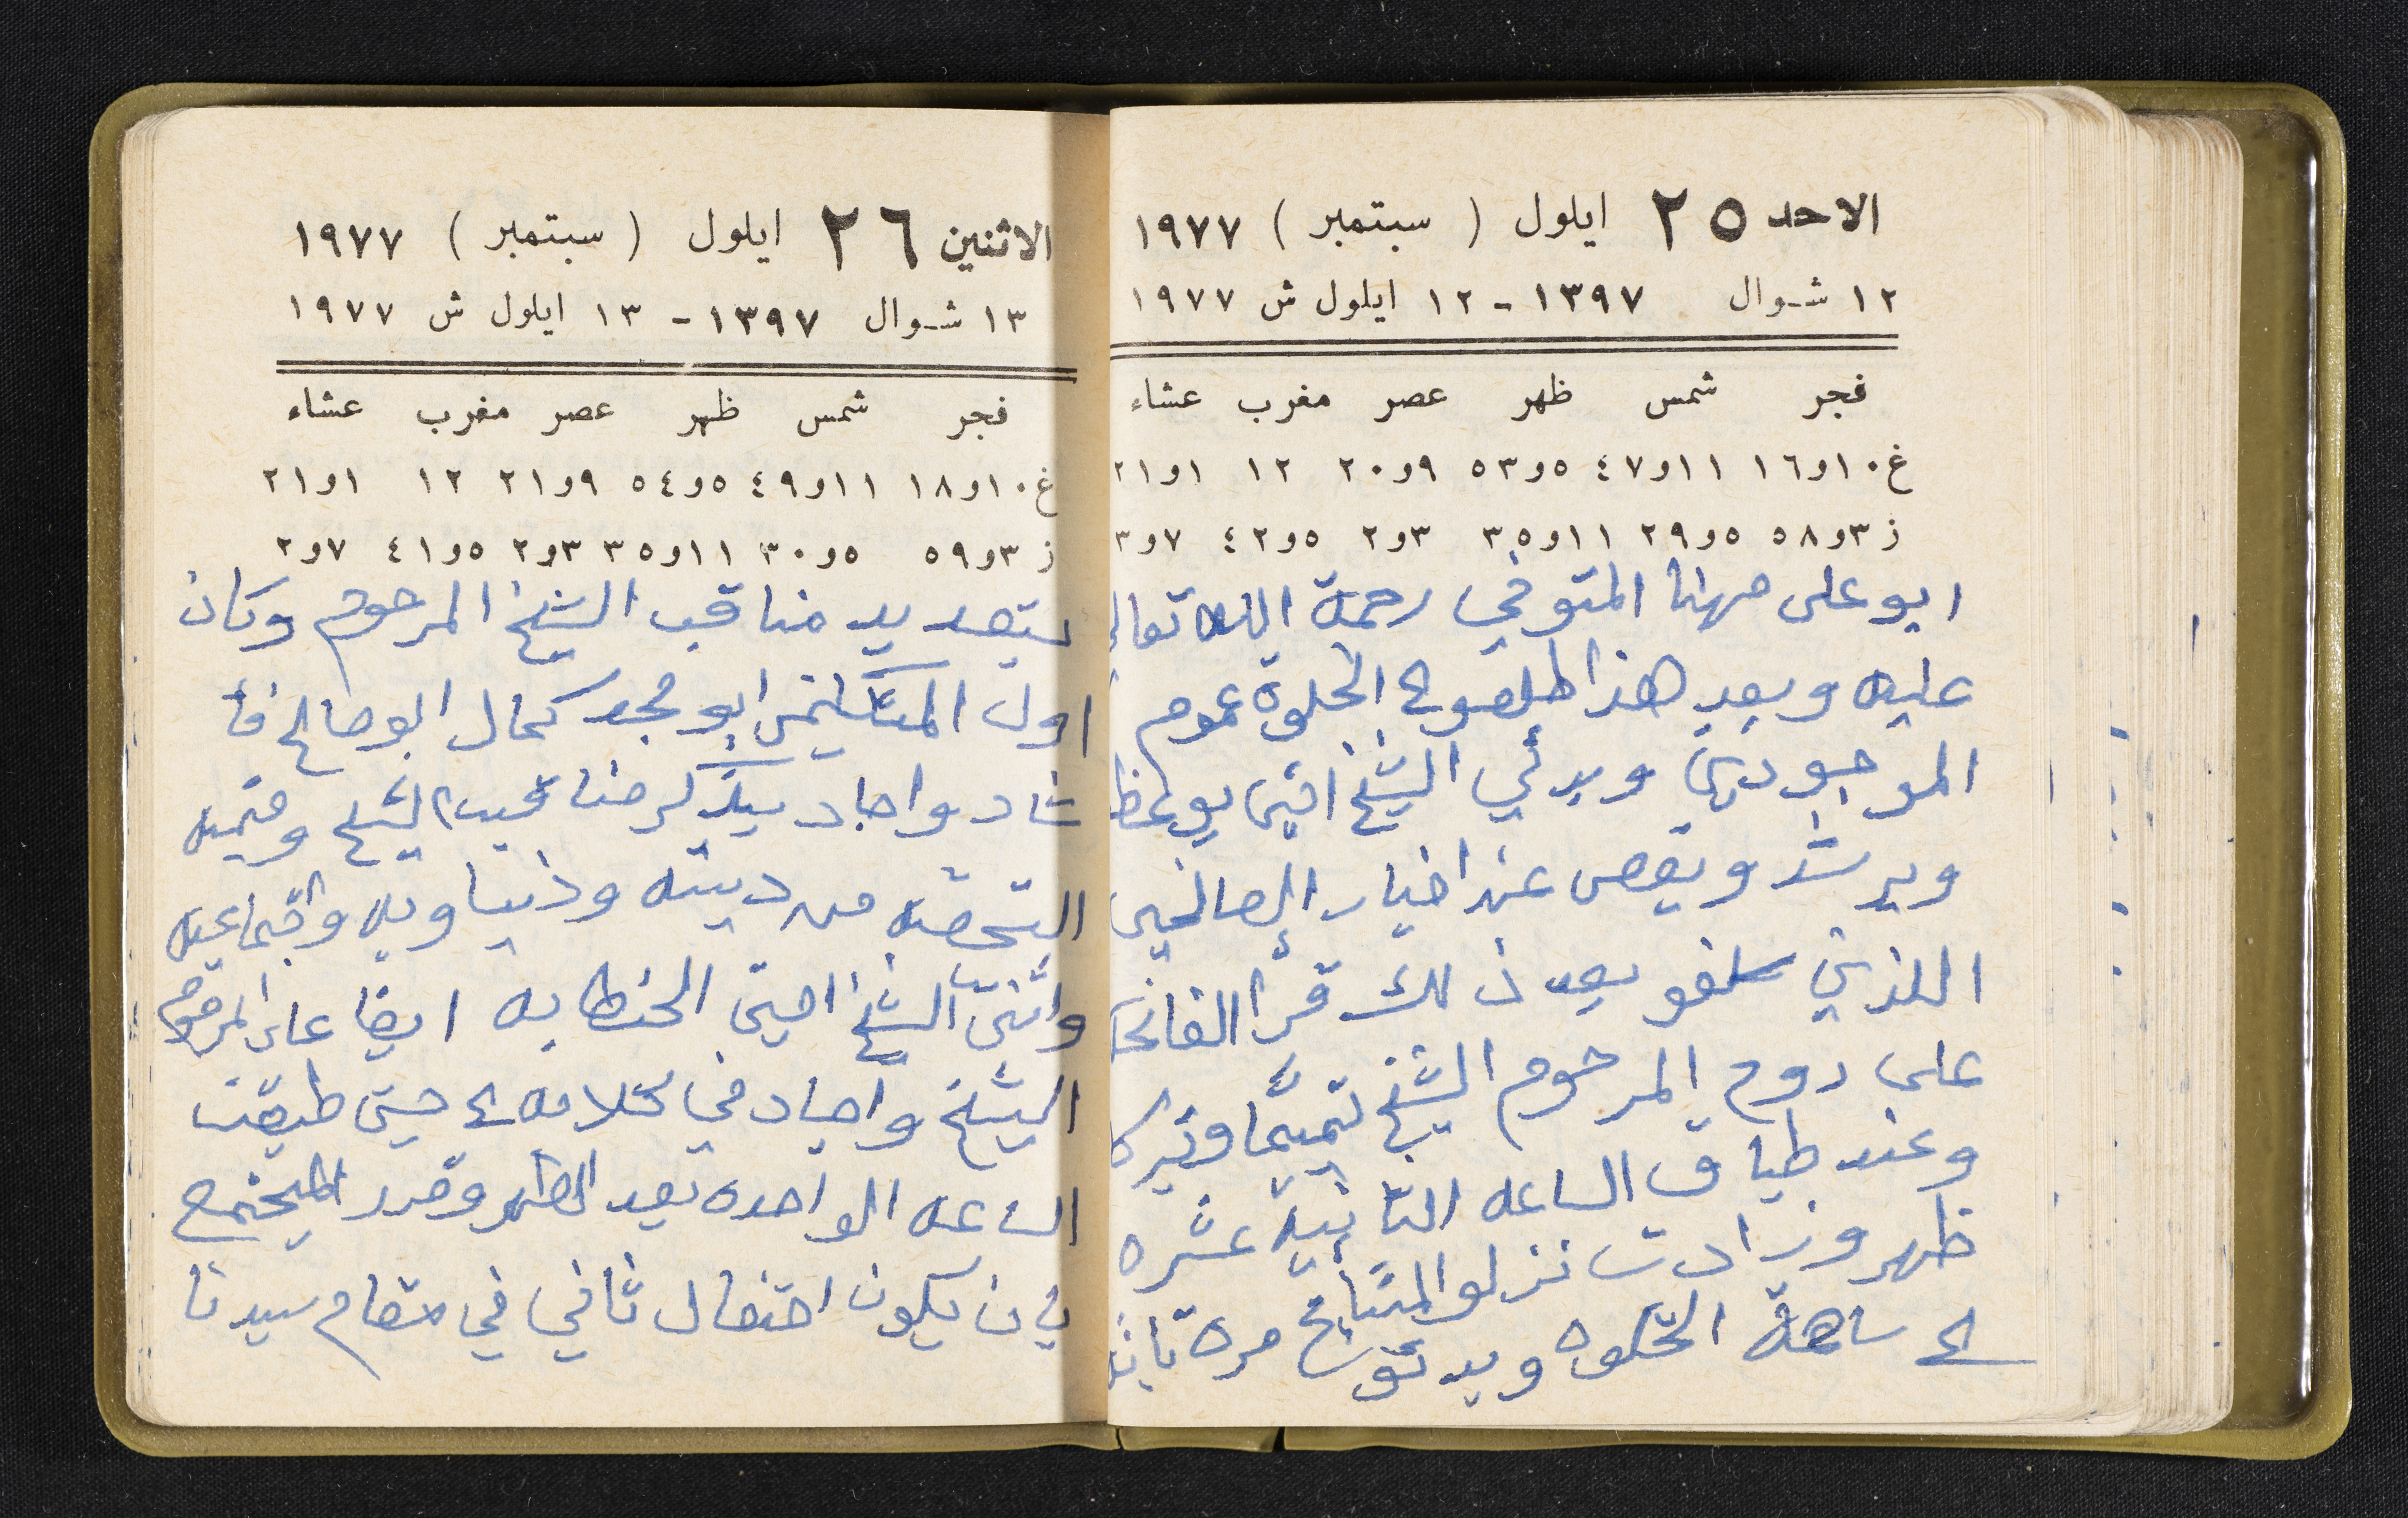 الاحد ٢٥ ايلول ( سبتمبر ) ١٩٧٧
١٢ شوال ١٣٩٧ - ١٢ ايلول ش ١٩٧٧
فجر شمس ظهر عصر مغرب عشاء
غ ١٠و١٦ ١١و٤٧ ٥و٥٣ ٩و٢٠ ١٢ ١و٢١
ز ٣و٥٨ ٥و٢٩ ١١و٣٥ ٣و٢ ٥و٤٢ ٧و٣
ابو علي مهنا المتوفي رحمة الله تعالى
عليه وبعد هذا طلعو الى الخلوة عموم
الموجودين وبدئي الشيخ امين يوعظ
ويرشد ويقص عن اخبار الصالحين
اللذين سلفو بعد ذالك قرأ الفاتحة
على روح المرحوم الشيخ تيميًا وتبركا
وعند طباق الساعه الثانيه عشره
ظهر وزادت نزلو المشايخ مرة ثانيه
الى ساحة الخلوه وبدئو
الاثنين ٢٦ ايلول ( سبتمبر ) ١٩٧٧
١٣ شوال ١٣٩٧ - ١٣ ايلول ش ١٩٧٧
فجر شمس ظهر عصر مغرب عشاء
غ ١٠و١٨ ١١و٤٩ ٥و٥٤ ٩و٢١ ١٢ ١و٢١
ز ٣و٥٩ ٥و٣٠ ١١و٣٥ ٣و٢ ٥و٤١ ٧و٢
بتعديد مناقب الشيخ المرحوم وكان
اول المتكلمين ابو محمد كمال ابو صالح فأ
شاد واجاد بذكر مناقب الشيخ وقيمه
من دينيه ودنياويه واجتماعيه
واثنى الشيخ امين الخطابه ايضا على المرحوم
الشيخ واجاد في كلامه الى حين طبقت
الساعه الواحده بعد الظهر وقرر المجتمع
بان يكون احتفال ثاني في مقام سيدنا